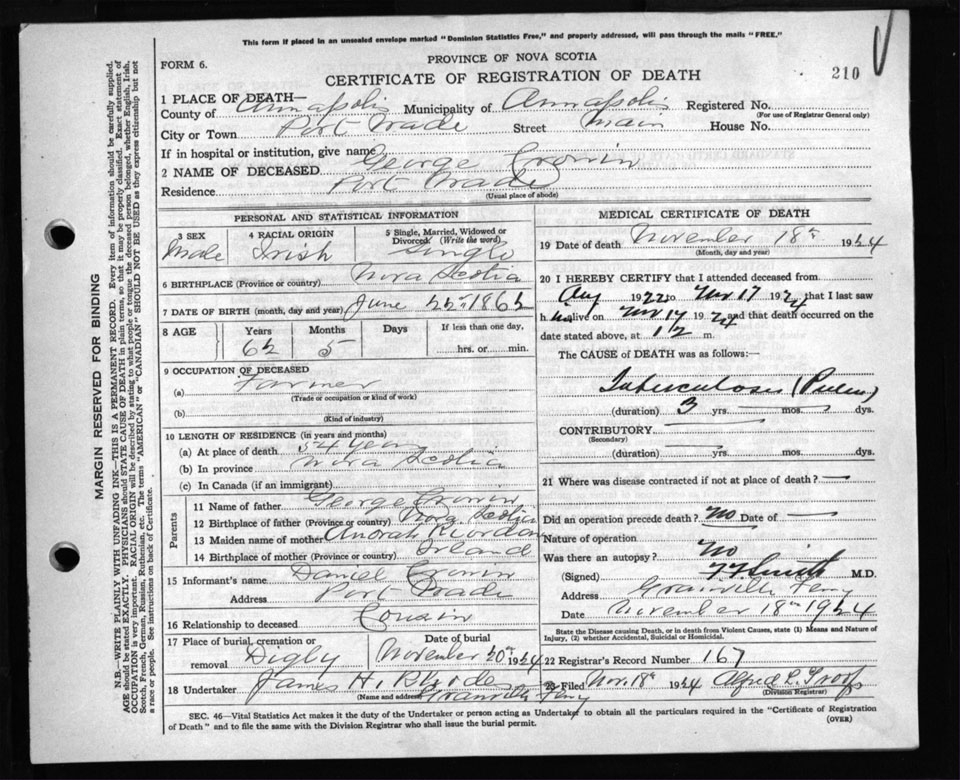 This form if placed in an unsealed envelope marked "Dominion Statistics Free," and properly addressed, will pass through the mails "FREE."
FORM 6.
PROVINCE OF NOVA SCOTIA
CERTIFICATE OF REGISTRATION OF DEATH
210
1 PLACE OF DEATH—
County of Annapolis Municipality of Annapolis Registered No.
(For use of Registrar General only)
City or Town Port Wade Street Main House No.
If in hospital or institution, give name
2 NAME OF DECEASED George Cronin
Residence Port Wade
(Usual place of abode)
PERSONAL AND STATISTICAL INFORMATION
3 SEX Male
4 RACIAL ORIGIN Irish
5 Single, Married, Widowed or Divorced. (Write the word) Single
6 BIRTHPLACE (Province or country) Nova Scotia
7 DATE OF BIRTH (month, day and year) June 22nd 1862
8 AGE Years Months Days If less than one day,
62 5 hrs. or min.
9 OCCUPATION OF DECEASED
(a) Farmer
(Trade or occupation or kind of work)
(b)
(Kind of industry)
10 LENGTH OF RESIDENCE (in years and months)
(a) At place of death 54 years
(b) In province Nova Scotia
(c) In Canada (if an immigrant)
Parents
11 Name of father George Cronin
12 Birthplace of father (Province or country) Nova Scotia
13 Maiden name of mother Anorah Riordan
14 Birthplace of mother (Province or country) Irland
15 Informant's name Daniel Cronin
Address Port Wade
16 Relationship to deceased Cousin
17 Place of burial, cremation or removal Digby
Date of burial November 20th 1924
18 Undertaker James H. Rhode
(Name and address) Granville Ferry
MEDICAL CERTIFICATE OF DEATH
19 Date of death November 18th 1924
(Month, day and year)
20 I HEREBY CERTIFY that I attended deceased from
Aug 1922 to Nov 17 1924 that I last saw
him alive on Nov 17 1924 and that death occurred on
date stated above, at 12 m.
The CAUSE of DEATH was as follows:—
Tuberculosis (Pulm)
(duration) 3 yrs. — mos. — dys.
CONTRIBUTORY
(Secondary)
(duration) yrs. mos. dys.
21 Where was disease contracted if not at place of death? —
Did an operation precede death? No Date of —
Nature of operation
Was there an autopsy? No
(Signed) Smith M.D.
Address Granville Ferry
Date November 18th 1924
State the Disease causing Death, or in death from Violent Causes, state (1) Means and Nature of
Injury, (2) whether Accidental, Suicidal or Homicidal.
22 Registrar's Record Number 167
23 Filed Nov. 18th 1924 Alfred L. Troop
(Division Registrar)
SEC. 46—Vital Statistics Act makes it the duty of the Undertaker or person acting as Undertaker to obtain all the particulars required in the "Certificate of Registration
of Death" and to file the same with the Division Registrar who shall issue the burial permit.
(OVER)
MARGIN RESERVED FOR BINDING
N.B.—WRITE PLAINLY WITH UNFADING INK—THIS IS A PERMANENT RECORD. Every item of information should be carefully supplied.
AGE should be stated EXACTLY. PHYSICIANS should STATE CAUSE OF DEATH in plain terms, so that it may be properly classified. Exact statement of
OCCUPATION is very important. RACIAL ORIGIN will be described by stating to what people or tongue the deceased person belonged, whether English, Irish,
Scotch, French, German, Russian, Ruthenian, etc. The terms "AMERICAN" or "CANADIAN" SHOULD NOT BE USED as they express citizenship but not
a race or people. See instructions on back of Certificate.